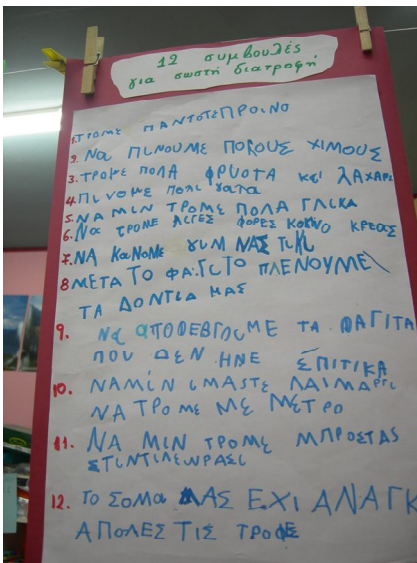 12 συμβουλές
για σωστή διατροφή
1. ΤΡΟΜΕ ΠΑΝΤΟΤΕ ΠΡΟΙΝΟ
2. Να ΠΙΝΟΥΜΕ ΠΟΛΟΥΣ ΧΙΜΟΥΣ
3. ΤΡΟΜΕ ΠΟΛΑ ΦΡΥΟΤΑ ΚΕ ΛΑΧΑΝΙ
4. ΠΙΝΟΜΕ ΠΟΛΙ ΓαΛα
5. ΝΑ ΜΙΝ ΤΡΟΜΕ ΠΟΛΑ ΓΛΙΚΑ
6. Να ΤΡΟΜΕ ΛΙΓΕΣ ΦΟΡΕΣ ΚΟΚΙΝΟ ΚΡΕΑΣ
7. ΝΑ ΚαΝΟΜΕ ΓΥΜΝΑΣΤΙΚΙ
8 ΜΕΤΑ ΤΟ ΦΑΓΙΤΟ ΠΛΕΝΟΥΜΕ
ΤΑ ΔΟΝΤΙΑ ΜΑΣ
9. Να αΠΟΦΕΒΓΟΥΜΕ ΤΑ ΦΑΓΙΤΑ
ΠΟΥ ΔΕΝ ΗΝΕ ΣΠΙΤΙΚΑ
10. ΝΑΜΙΝ ΙΜΑΣΤΕ ΛΑΙΜΑΡΓΙ
ΝΑ ΤΡΟΜΕ ΜΕ ΜΕΤΡΟ
11. ΝΑ ΜΙΝ ΤΡΟΜΕ ΜΠΡΟΣΤΑΣ
ΣΤΙΝΤΙΛΕΩΡΑΣΙ
12. ΤΟ ΣΟΜΑ ΜΑΣ ΕΧΙ ΑΝΑΓΚ
ΑΠΟΛΕΣ ΤΙΣ ΤΡΟΦΕ